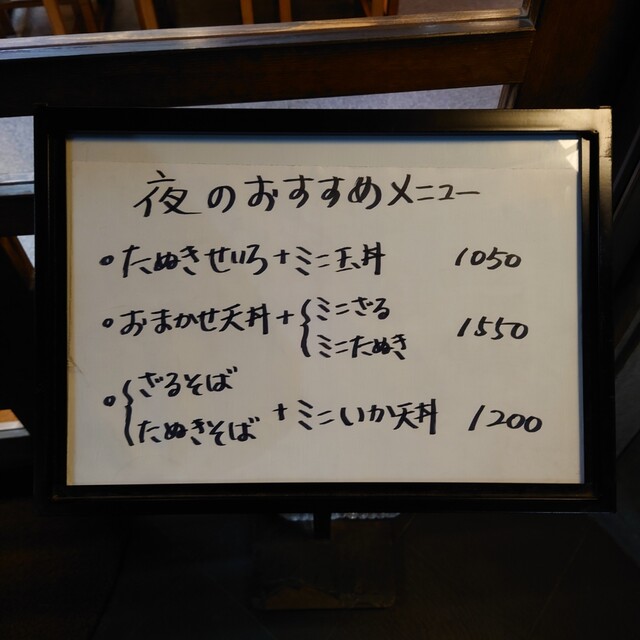 夜のおすすめメニュー
• たぬきせいろ + ミニ玉丼 1050
• おまかせ天丼 + { ミニざる 1550
ミニたぬき
• { ざるそば
たぬきそば + ミニいか天丼 1200